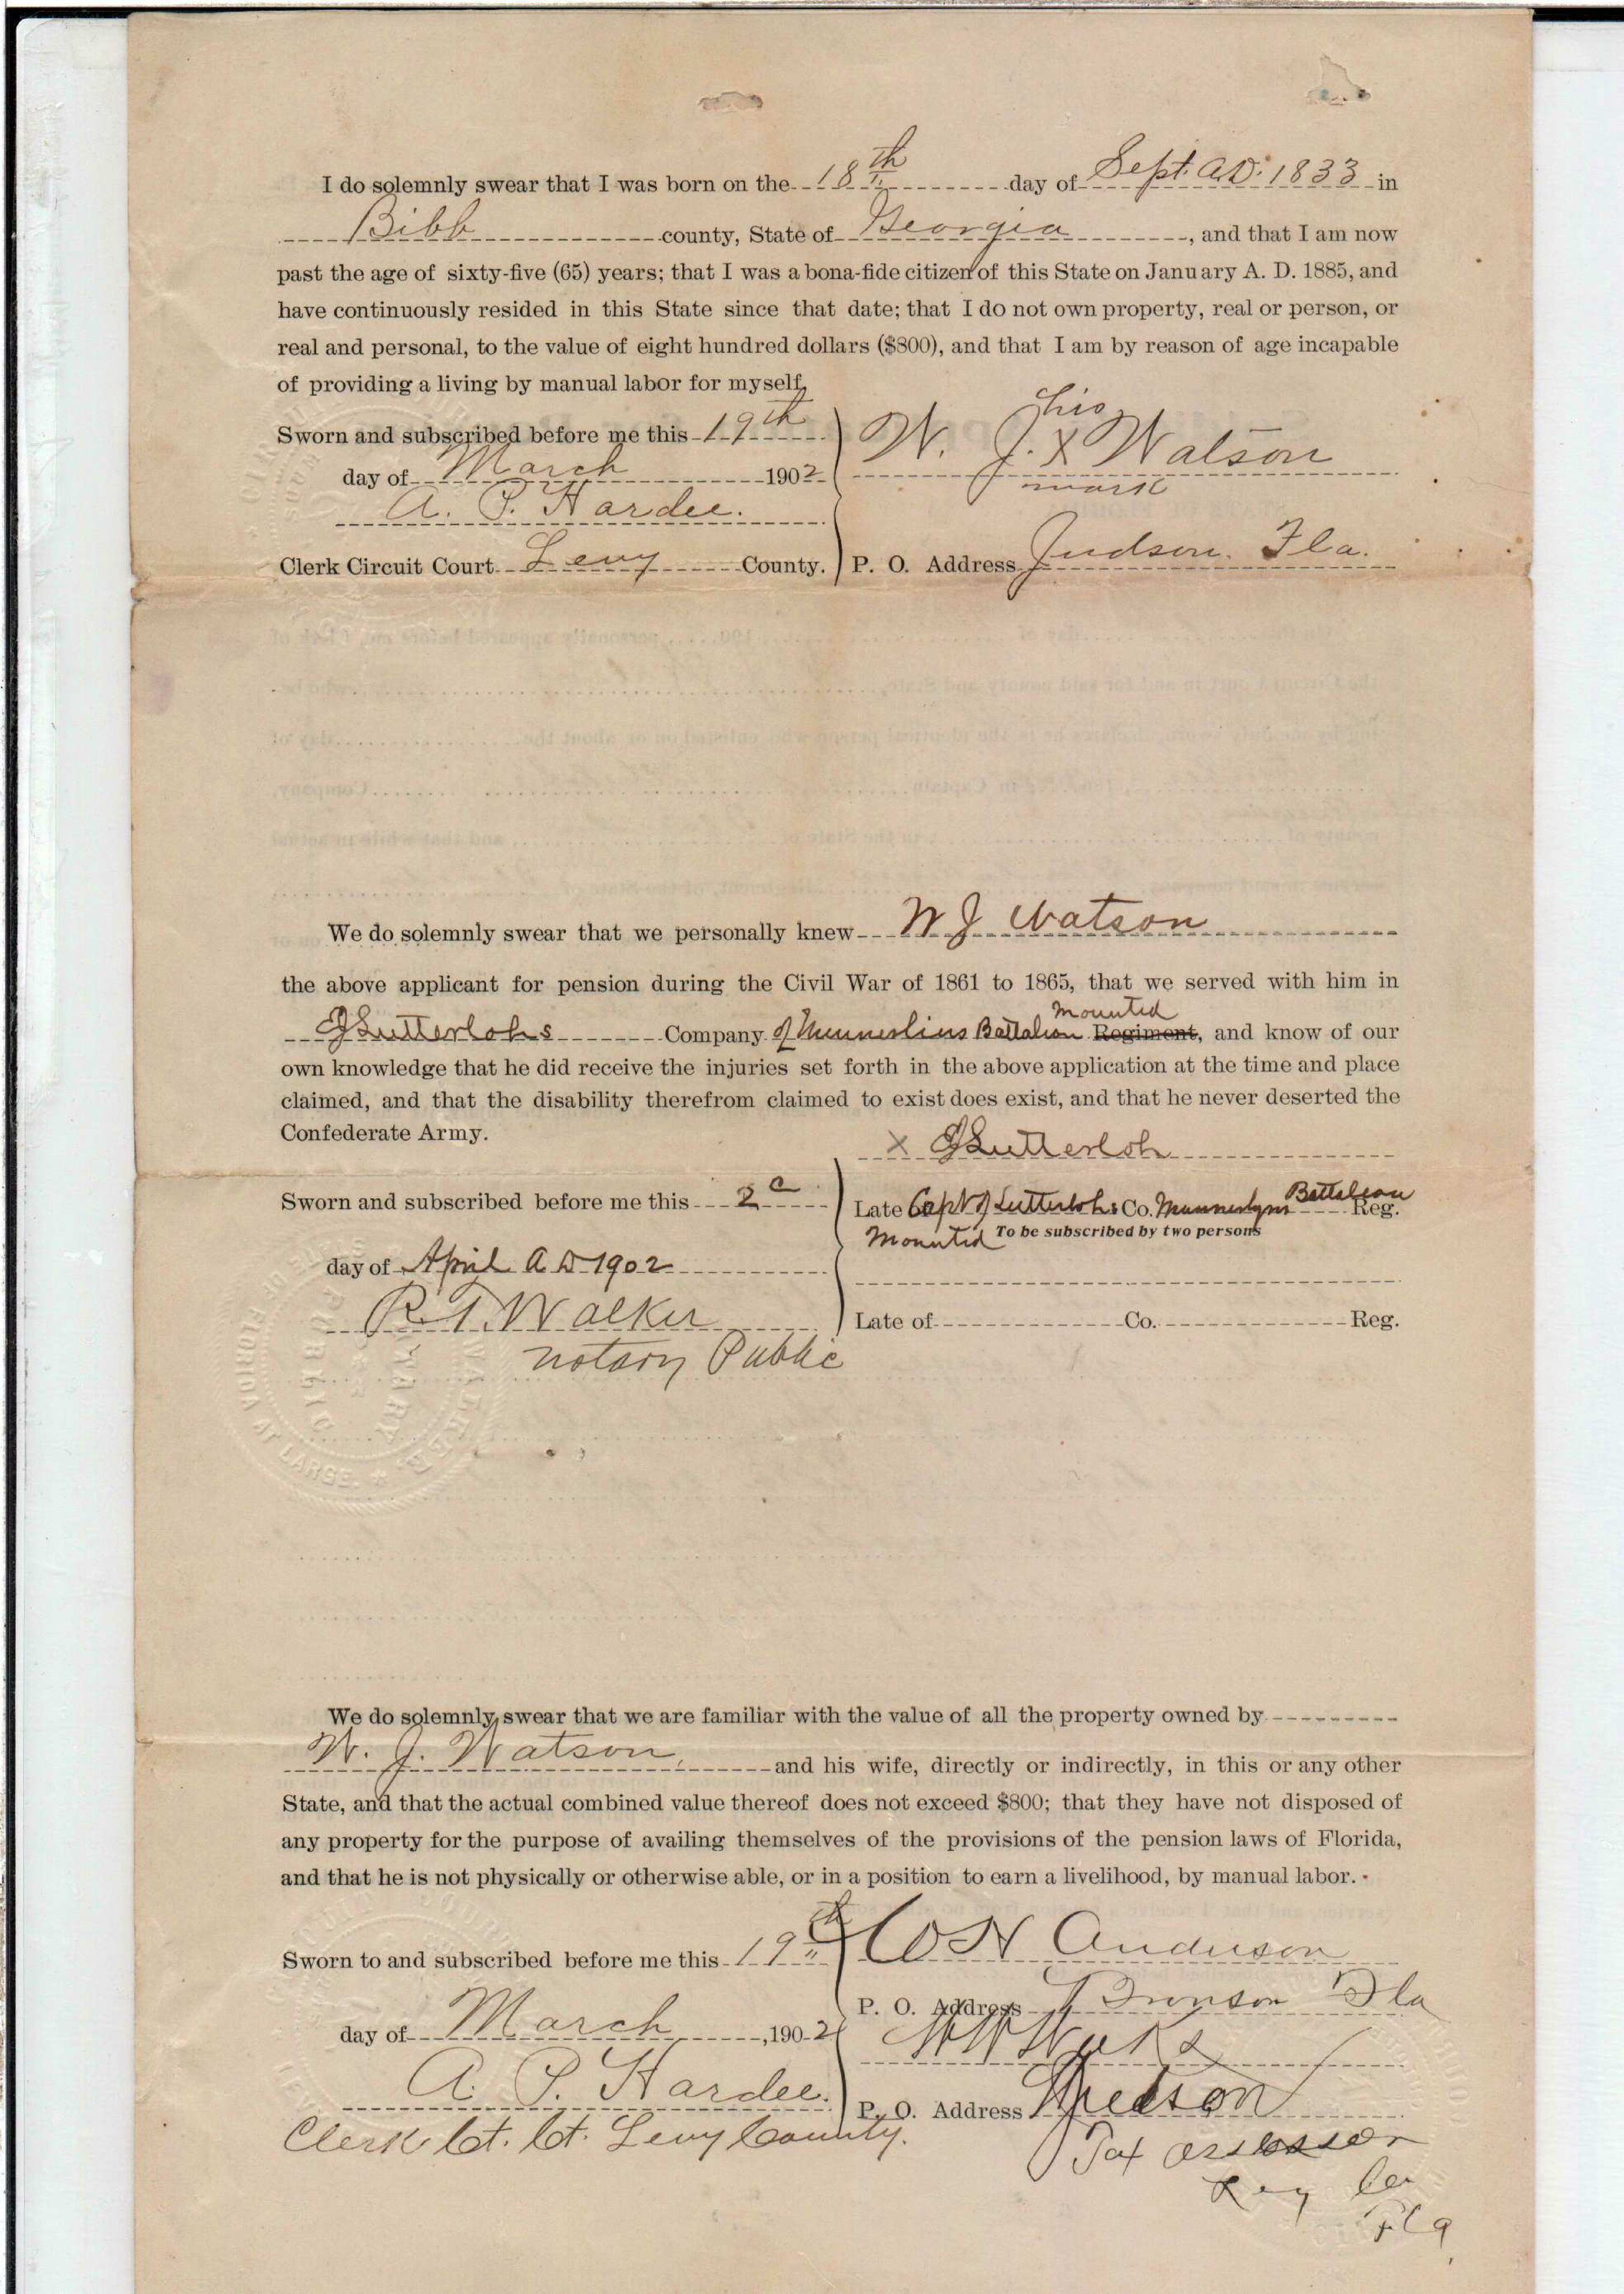 I do solemnly swear that I was born on the 18th day of Sept. A.D. 1833 in
Bibb county, State of Georgia, and that I am now
past the age of sixty-five (65) years; that I was a bona-fide citizen of this State on January A. D. 1885, and
have continuously resided in this State since that date; that I do not own property, real or person, or
real and personal, to the value of eight hundred dollars ($800), and that I am by reason of age incapable
of providing a living by manual labor for myself.
his
Sworn and subscribed before me this 19th W. J. X Watson
day of March 1902 mark
A. P. Hardee.
Clerk Circuit Court Levy County. P. O. Address Judson. Fla.
We do solemnly swear that we personally knew W J Watson
the above applicant for pension during the Civil War of 1861 to 1865, that we served with him in
Mounted
EJ Lutterlohs Company of Munnerlins Battalion Regiment, and know of our
own knowledge that he did receive the injuries set forth in the above application at the time and place
claimed, and that the disability therefrom claimed to exist does exist, and that he never deserted the
Confederate Army.
X EJ Lutterloh
Sworn and subscribed before me this 2 Late Capt of Lutterlohs Co. Munnerlyns Battalion Reg.
Mounted To be subscribed by two persons
day of April A D 1902
R. T. Walker Late of Co. Reg.
Notary Public
FLORIDA AT LARGE
We do solemnly swear that we are familiar with the value of all the property owned by
W. J. Watson, and his wife, directly or indirectly, in this or any other
State, and that the actual combined value thereof does not exceed $800; that they have not disposed of
any property for the purpose of availing themselves of the provisions of the pension laws of Florida,
and that he is not physically or otherwise able, or in a position to earn a livelihood, by manual labor.
Sworn to and subscribed before me this 19th Anderson
P. O. Address Bronson Fla
day of March, 1902
A. P. Hardee. P. O. Address
Clerk Ct. Ct. Levy County. Tax Assessor
Levy Co
Fla